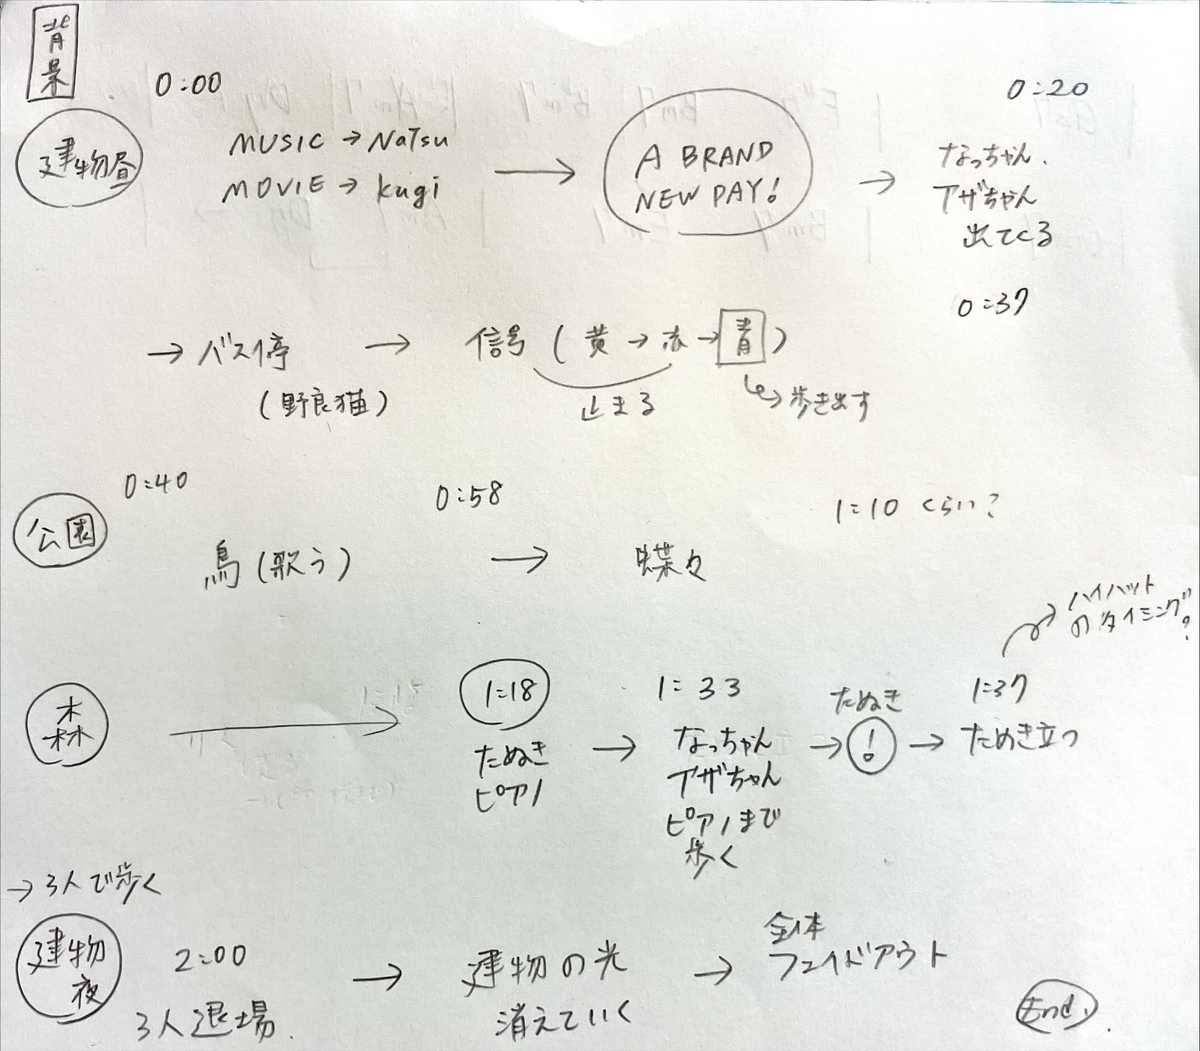 背景
0:00
0:20
建物昼
MUSIC → Natsu
MOVIE → kugi
→
A BRAND
NEW PAY!
→
なっちゃん、
アザちゃん
出てくる
0:37
→ バス停
(野良猫)
→
信号 (黄→赤→青)
止まる
↳ 歩き出す
0:40
0:58
1:10 くらい?
公園
鳥(歌う)
→
蝶々
ハイハット
のタイミング?
森
→
1:18
たぬき
ピアノ
→
1:33
なっちゃん
アザちゃん
ピアノまで
歩く
→
たぬき
!
→
1:37
たぬき立つ
→ 3人で歩く
建物
夜
2:00
3人退場.
→
建物の光
消えていく
→
全体
フェイドアウト
End.